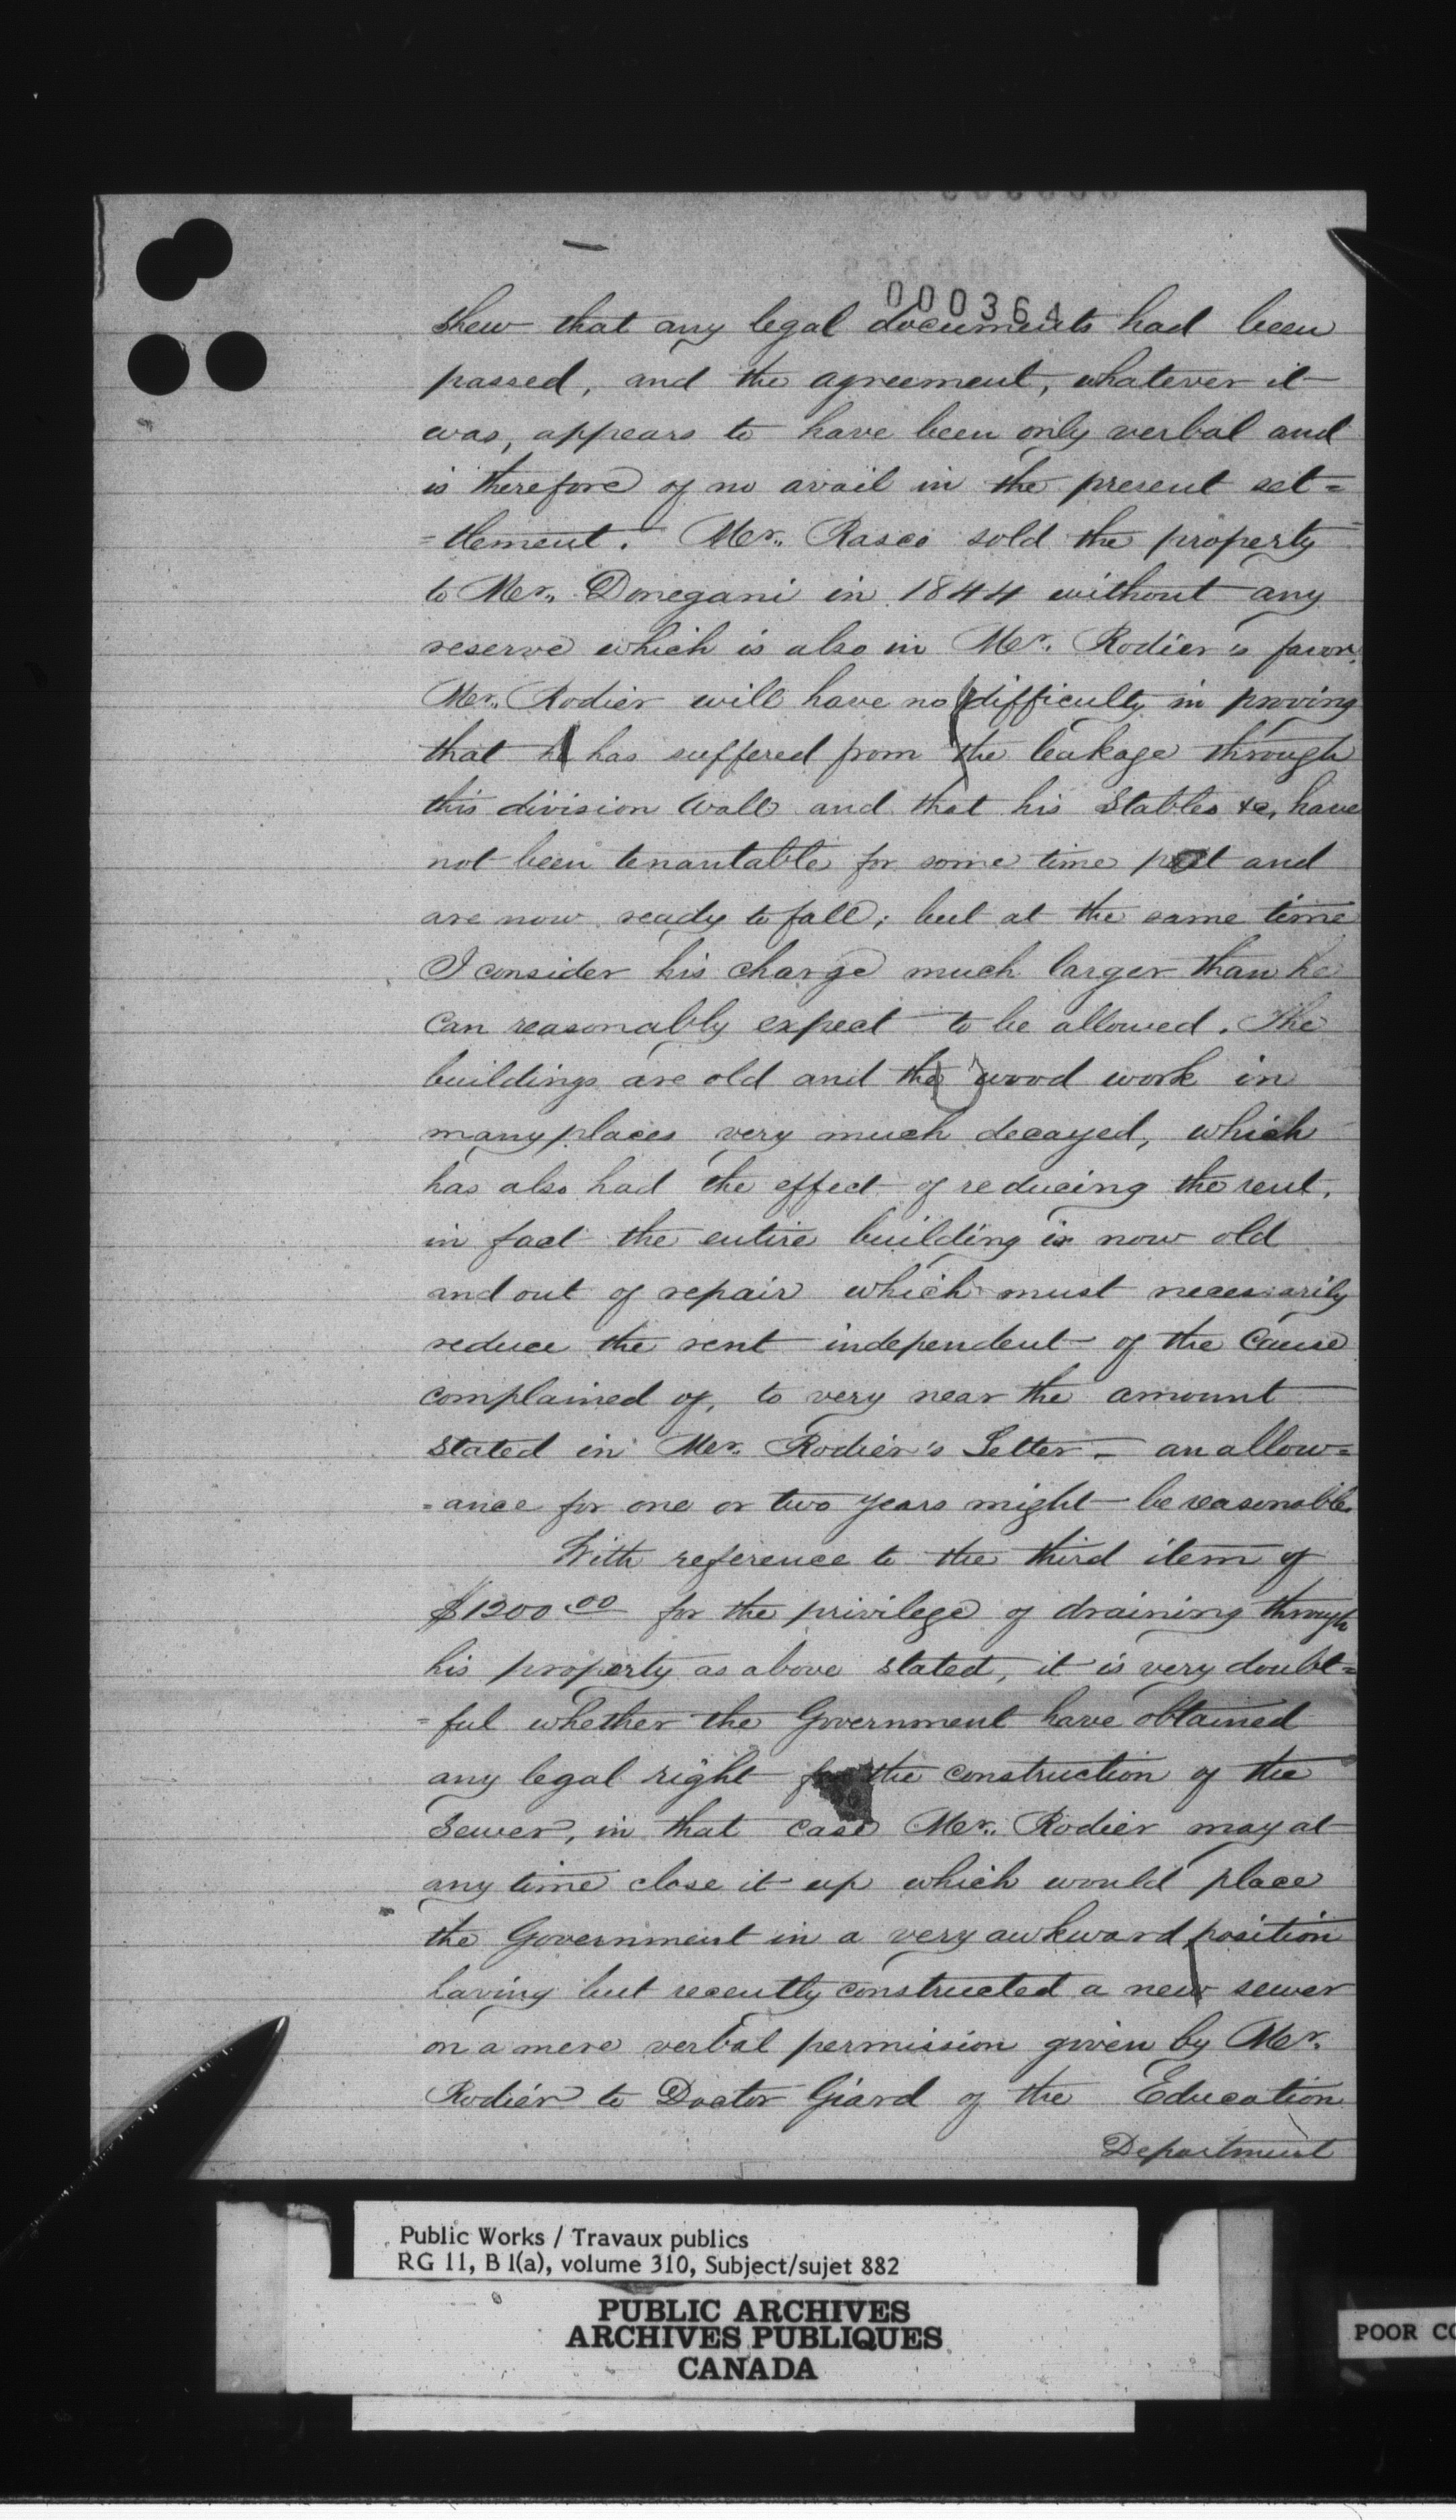 000364
shew that any legal documents had been
passed, and the agreement, whatever it
was, appears to have been only verbal and
is therefore of no avail in the present set=
=tlement. Mr. Rasco sold the property
to Mr. Donegani in 1844 without any
reserve which is also in Mr. Rodier's favor.
Mr. Rodier will have no difficulty in proving
that he has suffered from the leakage through
this division Wall and that his Stables &c, have
not been tenantable for some time past and
are now ready to fall; but at the same time
I consider his charge much larger than he
can reasonably expect to be allowed. The
buildings are old and the wood work in
many places very much decayed, which
has also had the effect of reducing the rent,
in fact the entire building is now old
and out of repair which must necessarily
reduce the rent independent of the Cause
complained of, to very near the amount
stated in Mr. Rodier's Letter – an allow=
=ance for one or two years might be reasonable.
With reference to the third item of
$1200.00 for the privilege of draining through
his property as above stated, it is very doubt=
=ful whether the Government have obtained
any legal right for the construction of the
Sewer, in that case Mr. Rodier may at
any time close it up which would place
the Government in a very awkward position
having but recently constructed a new sewer
on a mere verbal permission given by Mr.
Rodier to Doctor Giard of the Education
Department
Public Works / Travaux publics
RG 11, B 1(a), volume 310, Subject/sujet 882
PUBLIC ARCHIVES
ARCHIVES PUBLIQUES
CANADA
POOR CO